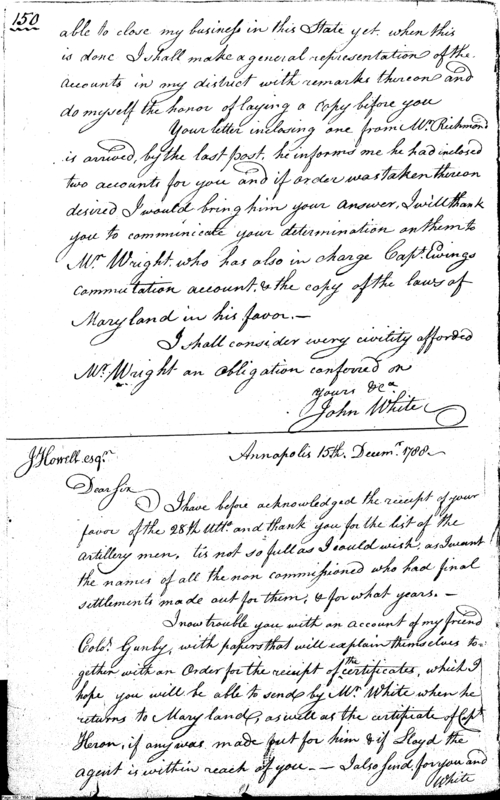 150
able to close my business in this State yet. when this
is done I shall make a general representation of the
accounts in my district with remarks thereon and
do myself the honor of laying a copy before you
Your letter inclosing one from Mr. Richmond
is arrived, by the last post, he informs me he had inclosed
two accounts for you and if order was taken thereon
desired I would bring him your answer, I will thank
you to communicate your determination on them to
Mr. Wright, who has also in charge Capt. Ewings
commutation account, & the copy of the laws of
Maryland in his favor. —
I shall consider every civility afforded
Mr. Wright an obligation conferred on
yours &ca
John White
J Howell esqr.
Annapolis 15th. Decemr. 1788
Dear Sir
I have before acknowledged the receipt of your
favor of the 28th Ulto. and thank you for the list of the
artillery men, tis not so full as I could wish, as I want
the names of all the non commissioned who had final
settlements made out for them, & for what years. —
I now trouble you with an account of my friend
Colo. Gunby, with papers that will explain themselves to-
gether with an Order for the receipt of the certificates, which I
hope you will be able to send by Mr. White when he
returns to Maryland, as well as the certificate of Capt
Heron, if any was made out for him & if Lloyd the
agent is within reach of you. — I also send for you and
White